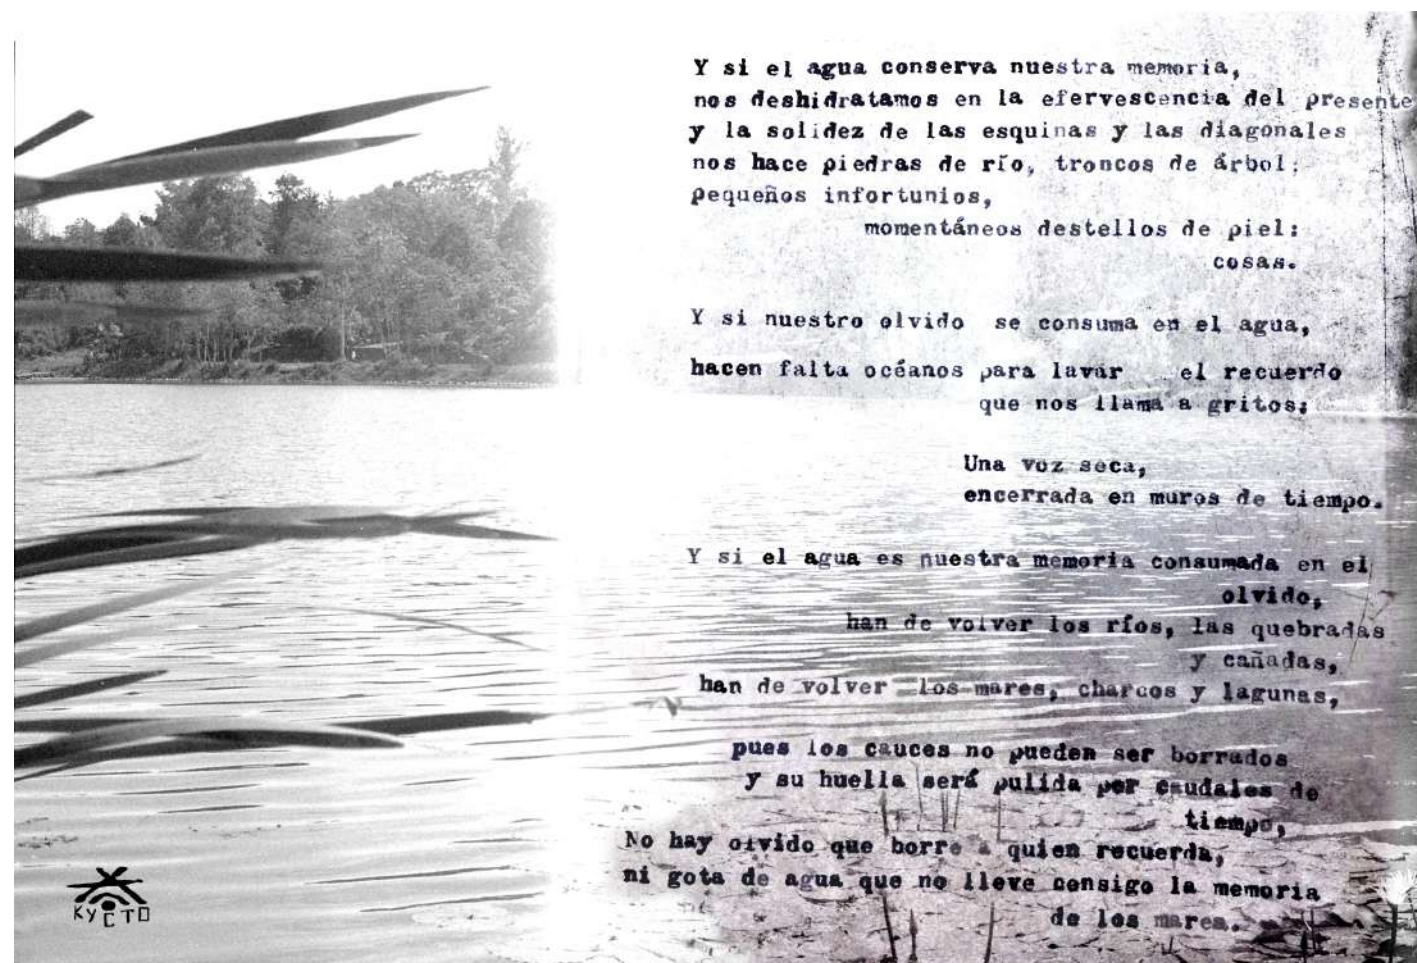 Y si el agua conserva nuestra memoria,
nos deshidratamos en la efervescencia del presente
y la solidez de las esquinas y las diagonales
nos hace piedras de río, troncos de árbol;
pequeños infortunios,
momentáneos destellos de piel:
cosas.
Y si nuestro olvido se consuma en el agua,
hacen falta océanos para lavar el recuerdo
que nos llama a gritos;
Una voz seca,
encerrada en muros de tiempo.
Y si el agua es nuestra memoria consumada en el
olvido,
han de volver los ríos, las quebradas
y cañadas,
han de volver los mares, charcos y lagunas,
pues los cauces no pueden ser borrados
y su huella será pulida por caudales de
tiempo,
No hay olvido que borre a quien recuerda,
ni gota de agua que no lleve consigo la memoria
de los mares.
KYCTO